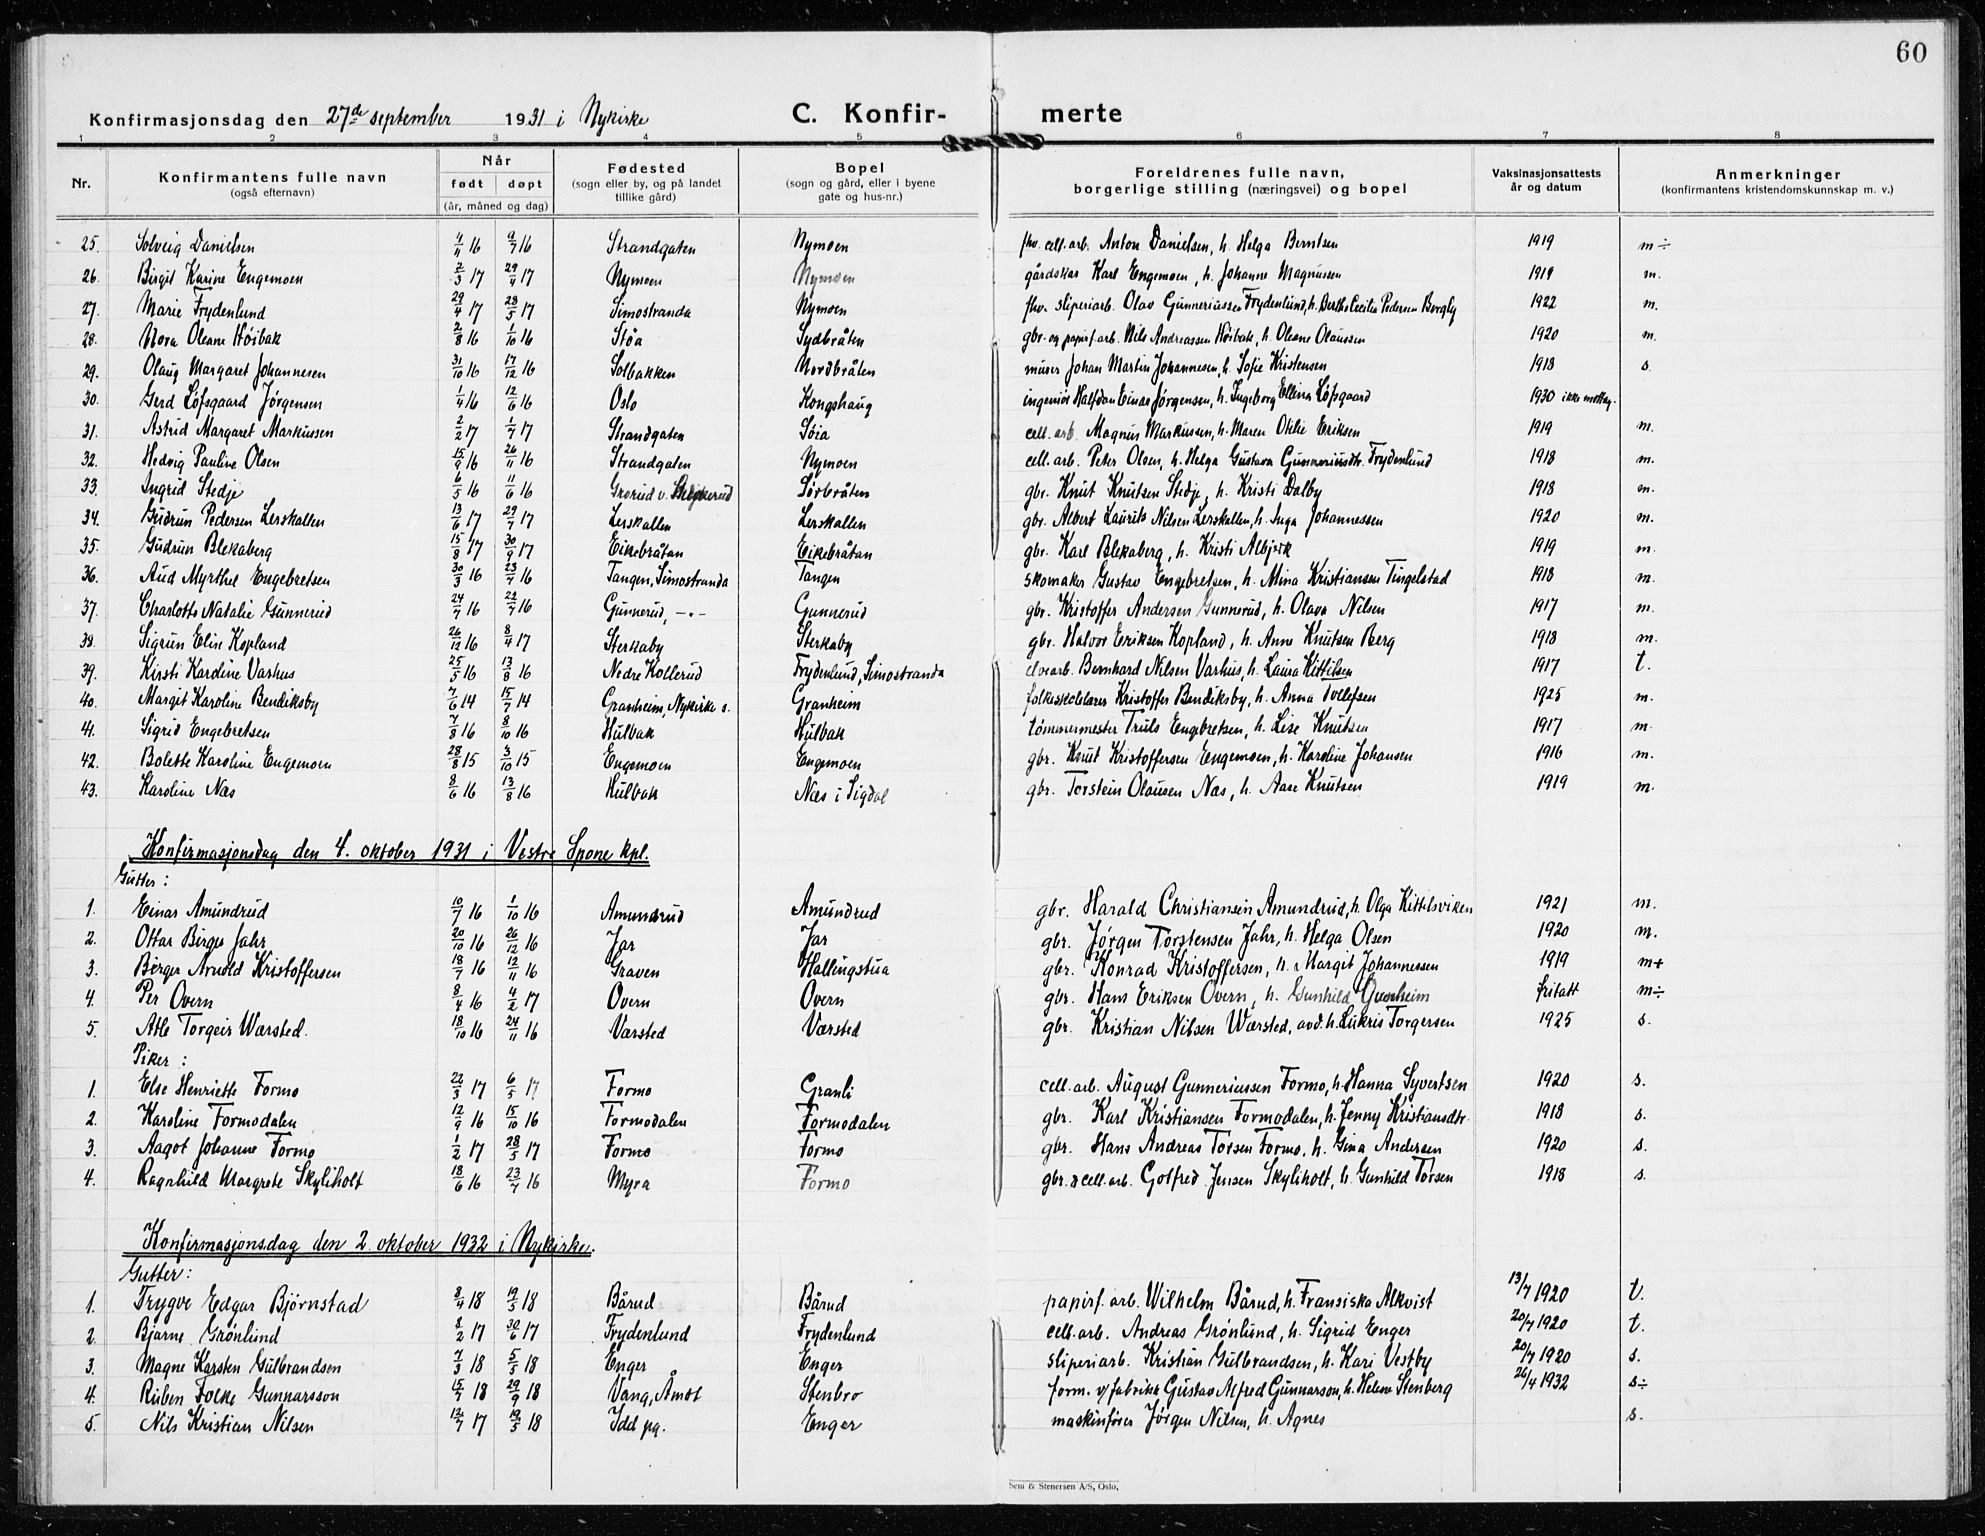 60
Konfirmasjonsdag den 27de september 1931 i Nykirke C. Konfir- merte
1 2 3 4 5 6 7 8
Nr. Konfirmantens fulle navn (også efternavn) Når født døpt (år, måned og dag) Fødested (sogn eller by, og på landet tillike gård) Bopel (sogn og gård, eller i byene gate og hus-nr.) Foreldrenes fulle navn, borgerlige stilling (næringsvei) og bopel Vaksinasjonsattests år og datum Anmerkninger (konfirmantens kristendomskunnskap m. v.)
25. Solveig Danielsen 4/4 16 9/7 16 Strandgaten Nymoen fhv. cell. arb. Anton Danielsen, h. Helga Berntsen 1919 m÷
26. Birgit Karine Engemoen 2/3 17 29/4 17 Nymoen Nymoen gårdskar Karl Engemoen, h. Johanne Magnussen 1919 m.
27. Marie Frydenlund 29/4 17 28/5 17 Simostranda Nymoen fhv. sliperiarb. Olav Gunneriussen Frydenlund, h. Berthe Cecilia Pedersen Borgby 1922 m.
28. Nora Oleane Høibak 2/8 16 1/10 16 Støa Sydbråten gbr. og papirf. arb. Nils Andreassen Høibak, h. Oleane Olaussen 1920 m.
29. Olaug Margaret Johannesen 31/10 16 17/12 16 Solbakken Nordbråten murer Johan Martin Johannesen, h. Sofie Kristensen 1918 s.
30. Gerd Löfsgaard Jørgensen 1/4 16 12/6 16 Oslo Kongshaug ingeniør Halfdan Einar Jørgensen, h. Ingeborg Elline Löfsgaard 1930 ikke mottag.
31. Astrid Margaret Markussen 2/2 17 1/7 17 Strandgaten Søia cell. arb. Magnus Markussen, h. Maren Otilie Eriksen 1919 m.
32. Hedvig Pauline Olsen 15/9 16 26/11 16 Strandgaten Nymoen cell. arb. Peter Olsen, h. Helga Gustava Gunneriusdtr. Frydenlund 1918 m.
33. Ingrid Stedje 6/5 16 11/6 16 Grorud v. Sørbråten gbr. Knut Knutsen Stedje, h. Kristi Dalby 1918 m.
34. Gudrun Pedersen Lerskallen 13/6 17 29/7 17 Lerskallen Lerskallen gbr. Albert Laurits Nilsen Lerskallen, h. Inga Johannessen 1920 m.
35. Gudrun Blekaberg 15/8 17 30/9 17 Eikebråtan Eikebråtan gbr. Karl Blekaberg, h. Kristi Albjerk 1919 m.
36. Aud Myrthel Engebretsen 30/3 16 23/7 16 Tangen, Simostranda Tangen skomaker Gustav Engebretsen, h. Mina Kristiansen Tingelstad 1918 m.
37. Charlotte Natalie Gunnerud 24/7 16 16 Gunnerud, -"- Gunnerud gbr. Kristoffer Andersen Gunnerud, h. Olava Nilsen 1917 m.
38. Sigrun Elin Kopland 26/12 16 8/4 17 Sterkaby Sterkaby gbr. Halvor Eriksen Kopland, h. Anne Knutsen Berg 1918 m.
39. Kirsti Kardine Varhus 25/5 16 13/8 16 Nedre Kollerud Frydenlund, Simostranda elvearb. Bernhard Nilsen Varhus, h. Laura Kittilsen 1917 t.
40. Margit Karoline Bendiksby 7/6 14 15/7 14 Granheim, Nykirke s. Granheim folkeskolelærer Kristoffer Bendiksby, h. Anna Tollefsen 1925 m.
41. Sigrid Engebretsen 7/8 16 8/10 16 Hulbak Hulbak tømmermester Truls Engebretsen, h. Lise Knutsen 1917 m.
42. Bolette Karoline Engemoen 28/8 15 3/10 15 Engemoen Engemoen gbr. Knut Kristoffersen Engemoen, h. Karoline Johansen 1916 m.
43. Karoline Næs 8/6 16 13/8 16 Hulbak Næs i Sigdal gbr. Torstein Olausen Næs, h. Aase Knutsen 1919 m.
Konfirmasjonsdag den 4. oktober 1931 i Vestre Spone kpl.
Gutter:
1. Einar Amundrud 10/7 16 1/10 16 Amundrud Amundrud gbr. Harald Christiansein Amundrud, h. Olga Kittelsviken 1921 m.
2. Ottar Birger Jahr 20/10 16 26/12 16 Jar Jar gbr. Jørgen Torstensen Jahr, h. Helga Olsen 1920 m.
3. Birger Arnold Kristoffersen 18/7 16 12/11 16 Graven Hallingstua gbr. Konrad Kristoffersen, h. Margit Johannessen 1919 m+
4. Per Overn 8/4 16 4/2 17 Overn Overn gbr. Hans Eriksen Overn, h. Gunhild Gunheim fritatt m÷
5. Atle Torgeir Wærsted. 18/10 16 24/11 16 Værsted Værsted gbr. Kristian Nilsen Wærsted, avd. h. Lukris Torgersen 1925 s.
Piker:
1. Else Henriette Formo 22/3 17 6/5 17 Formo Granli cell. arb. August Gunneriussen Formo, h. Hanna Syvertsen 1920 s.
2. Karoline Formodalen 12/9 16 15/10 16 Formodalen Formodalen gbr. Karl Kristiansen Formodalen, h. Jenny Kristiansdtr. 1918 s.
3. Aagot Johanne Formo 1/2 17 28/5 17 Formo Formo gbr. Hans Andreas Torsen Formo, h. Gina Andersen 1920 s.
4. Ragnhild Margrete Skyliholt 18/6 16 23/7 16 Myra Formo gbr. & cell. arb. Golfred Jensen Skyliholt, h. Gunhild Torsen 1918 s.
Konfirmasjonsdag den 2. oktober 1932 i Nykirke.
Gutter:
1. Trygve Edgar Bjørnstad 8/4 18 19/5 18 Bårud Bårud papirf. arb. Wilhelm Bårud, h. Fransiska Alkvist 13/7 1920 t.
2. Bjarne Grønlund 8/2 17 30/6 17 Frydenlund Frydenlund cell. arb. Andreas Grønlund, h. Sigrid Enger 20/7 1920 t.
3. Magne Karsten Gulbrandsen 7/3 18 5/5 18 Enger Enger sliperiarb. Kristian Gulbrandsen, h. Kari Vestby 20/7 1920 s.
4. Ruben Folke Gunnarsson 15/7 18 29/9 18 Vang, Åmot Stenbro form. v/ fabrikk Gustav Alfred Gunnarsson, h. Helene Stenberg 26/4 1932 s÷
5. Nils Kristian Nilsen 12/7 17 19/5 18 Idd pg. Enger maskinfører Jørgen Nilsen, h. Agnes s.
Sem & Stenersen A/S, Oslo.